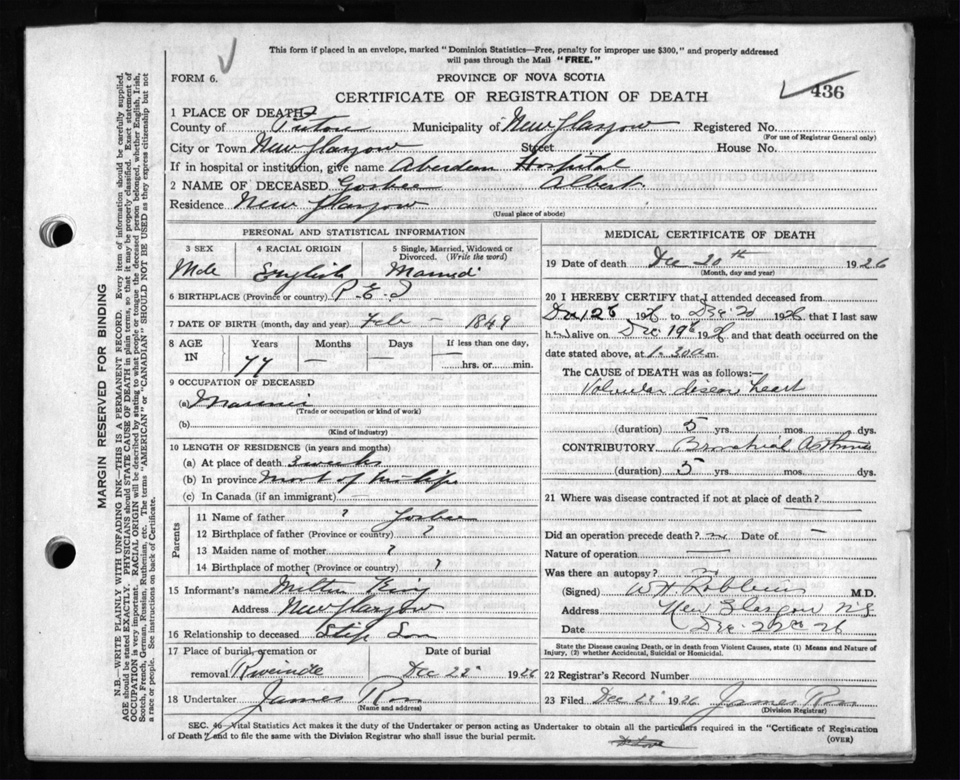 This form if placed in an envelope, marked "Dominion Statistics—Free, penalty for improper use $300," and properly addressed
will pass through the Mail "FREE."
FORM 6.
PROVINCE OF NOVA SCOTIA
CERTIFICATE OF REGISTRATION OF DEATH
436
1 PLACE OF DEATH
County of Pictou Municipality of New Glasgow Registered No.
(For use of Registrar General only)
City or Town New Glasgow Street House No.
If in hospital or institution, give name Aberdeen Hospital
2 NAME OF DECEASED Gosbee Albert
Residence New Glasgow
(Usual place of abode)
PERSONAL AND STATISTICAL INFORMATION
3 SEX 4 RACIAL ORIGIN 5 Single, Married, Widowed or Divorced. (Write the word)
Male English Married
6 BIRTHPLACE (Province or country) P.E.I
7 DATE OF BIRTH (month, day and year) Feb — 1849
8 AGE IN Years Months Days If less than one day,
77 — — hrs. or min.
9 OCCUPATION OF DECEASED
(a)
(Trade or occupation or kind of work)
(b)
(Kind of industry)
10 LENGTH OF RESIDENCE (in years and months)
(a) At place of death 3 weeks
(b) In province most of his life
(c) In Canada (if an immigrant) —
Parents
11 Name of father ? Gosbee
12 Birthplace of father (Province or country) ?
13 Maiden name of mother ?
14 Birthplace of mother (Province or country) ?
15 Informant's name King
Address New Glasgow
16 Relationship to deceased Step Son
17 Place of burial, cremation or removal Date of burial
Dec 22 1926
18 Undertaker James
(Name and address)
MEDICAL CERTIFICATE OF DEATH
19 Date of death Dec 20th 1926
(Month, day and year)
20 I HEREBY CERTIFY that I attended deceased from
Dec 1926 to Dec 20 1926 that I last saw
h alive on Dec 19th 1926 and that death occurred on the
date stated above, at 1.30 a m.
The CAUSE OF DEATH was as follows:—
Valvular disease heart
(duration) 5 yrs. mos. dys.
CONTRIBUTORY Bronchial Asthma
(duration) 5 yrs. mos. dys.
21 Where was disease contracted if not at place of death?
Did an operation precede death? no Date of —
Nature of operation —
Was there an autopsy? no
(Signed) M.D.
Address New Glasgow N.S.
Date Dec 22nd 26
State the Disease causing Death, or in death from Violent Causes, state (1) Means and Nature of
Injury, (2) whether Accidental, Suicidal or Homicidal.
22 Registrar's Record Number
23 Filed Dec 22 1926 James
(Division Registrar)
SEC. 46 Vital Statistics Act makes it the duty of the Undertaker or person acting as Undertaker to obtain all the particulars required in the "Certificate of Registration
of Death" and to file the same with the Division Registrar who shall issue the burial permit.
(OVER)
MARGIN RESERVED FOR BINDING
N.B.—WRITE PLAINLY WITH UNFADING INK—THIS IS A PERMANENT RECORD. Every item of information should be carefully supplied.
AGE should be stated EXACTLY. PHYSICIANS should STATE CAUSE OF DEATH in plain terms, so that it may be properly classified. Exact statement of
OCCUPATION is very important. RACIAL ORIGIN will be described by stating to what people or tongue the deceased person belonged, whether English, Irish,
Scotch, French, German, Russian, Ruthenian, etc. The terms "AMERICAN" or "CANADIAN" SHOULD NOT BE USED as they express citizenship but not
a race or people. See instructions on back of Certificate.